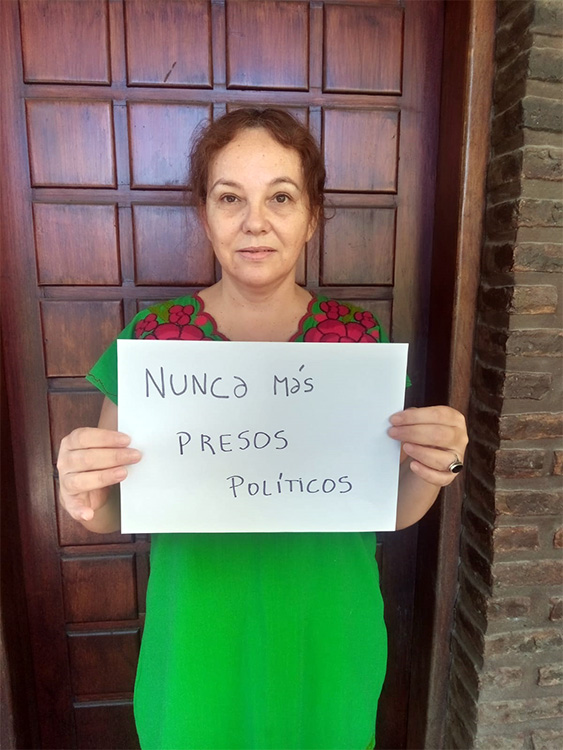 NUNCa Más
PRESOS
POLÍTICOS